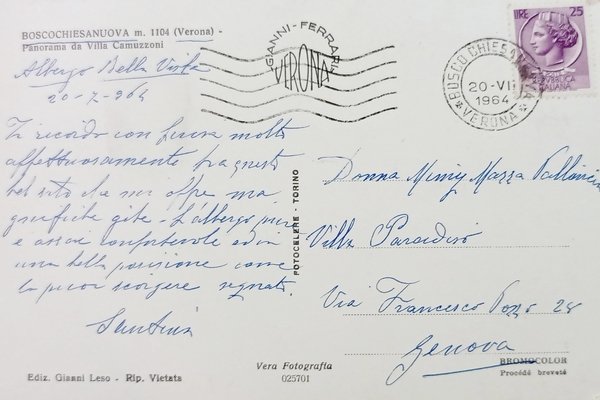 BOSCOCHIESANUOVA m. 1104 (Verona) -
Panorama da Villa Camuzzoni
Albergo Bella Vista
20-7-964
Ti ricordo con molto
affettuosamente fra questo
bel sito che mi offre ma
gnifiche gite - L'albergo pure
e assai confortevole ed in
una bella posizione come
la puoi scorgere segnato.
Santina
Ediz. Gianni Leso - Rip. Vietata
FOTOCELERE - TORINO
Vera Fotografia
025701
GIANNI-FERRARI
VERONA
BOSCO CHIESANUOVA
20-VII
1964
* VERONA *
LIRE 25
REPUBBLICA
ITALIANA
Donna Mimy Mazza
Villa Paradiso
Via Francesco Pozzo 28
Genova
BROMOCOLOR
Procédé breveté